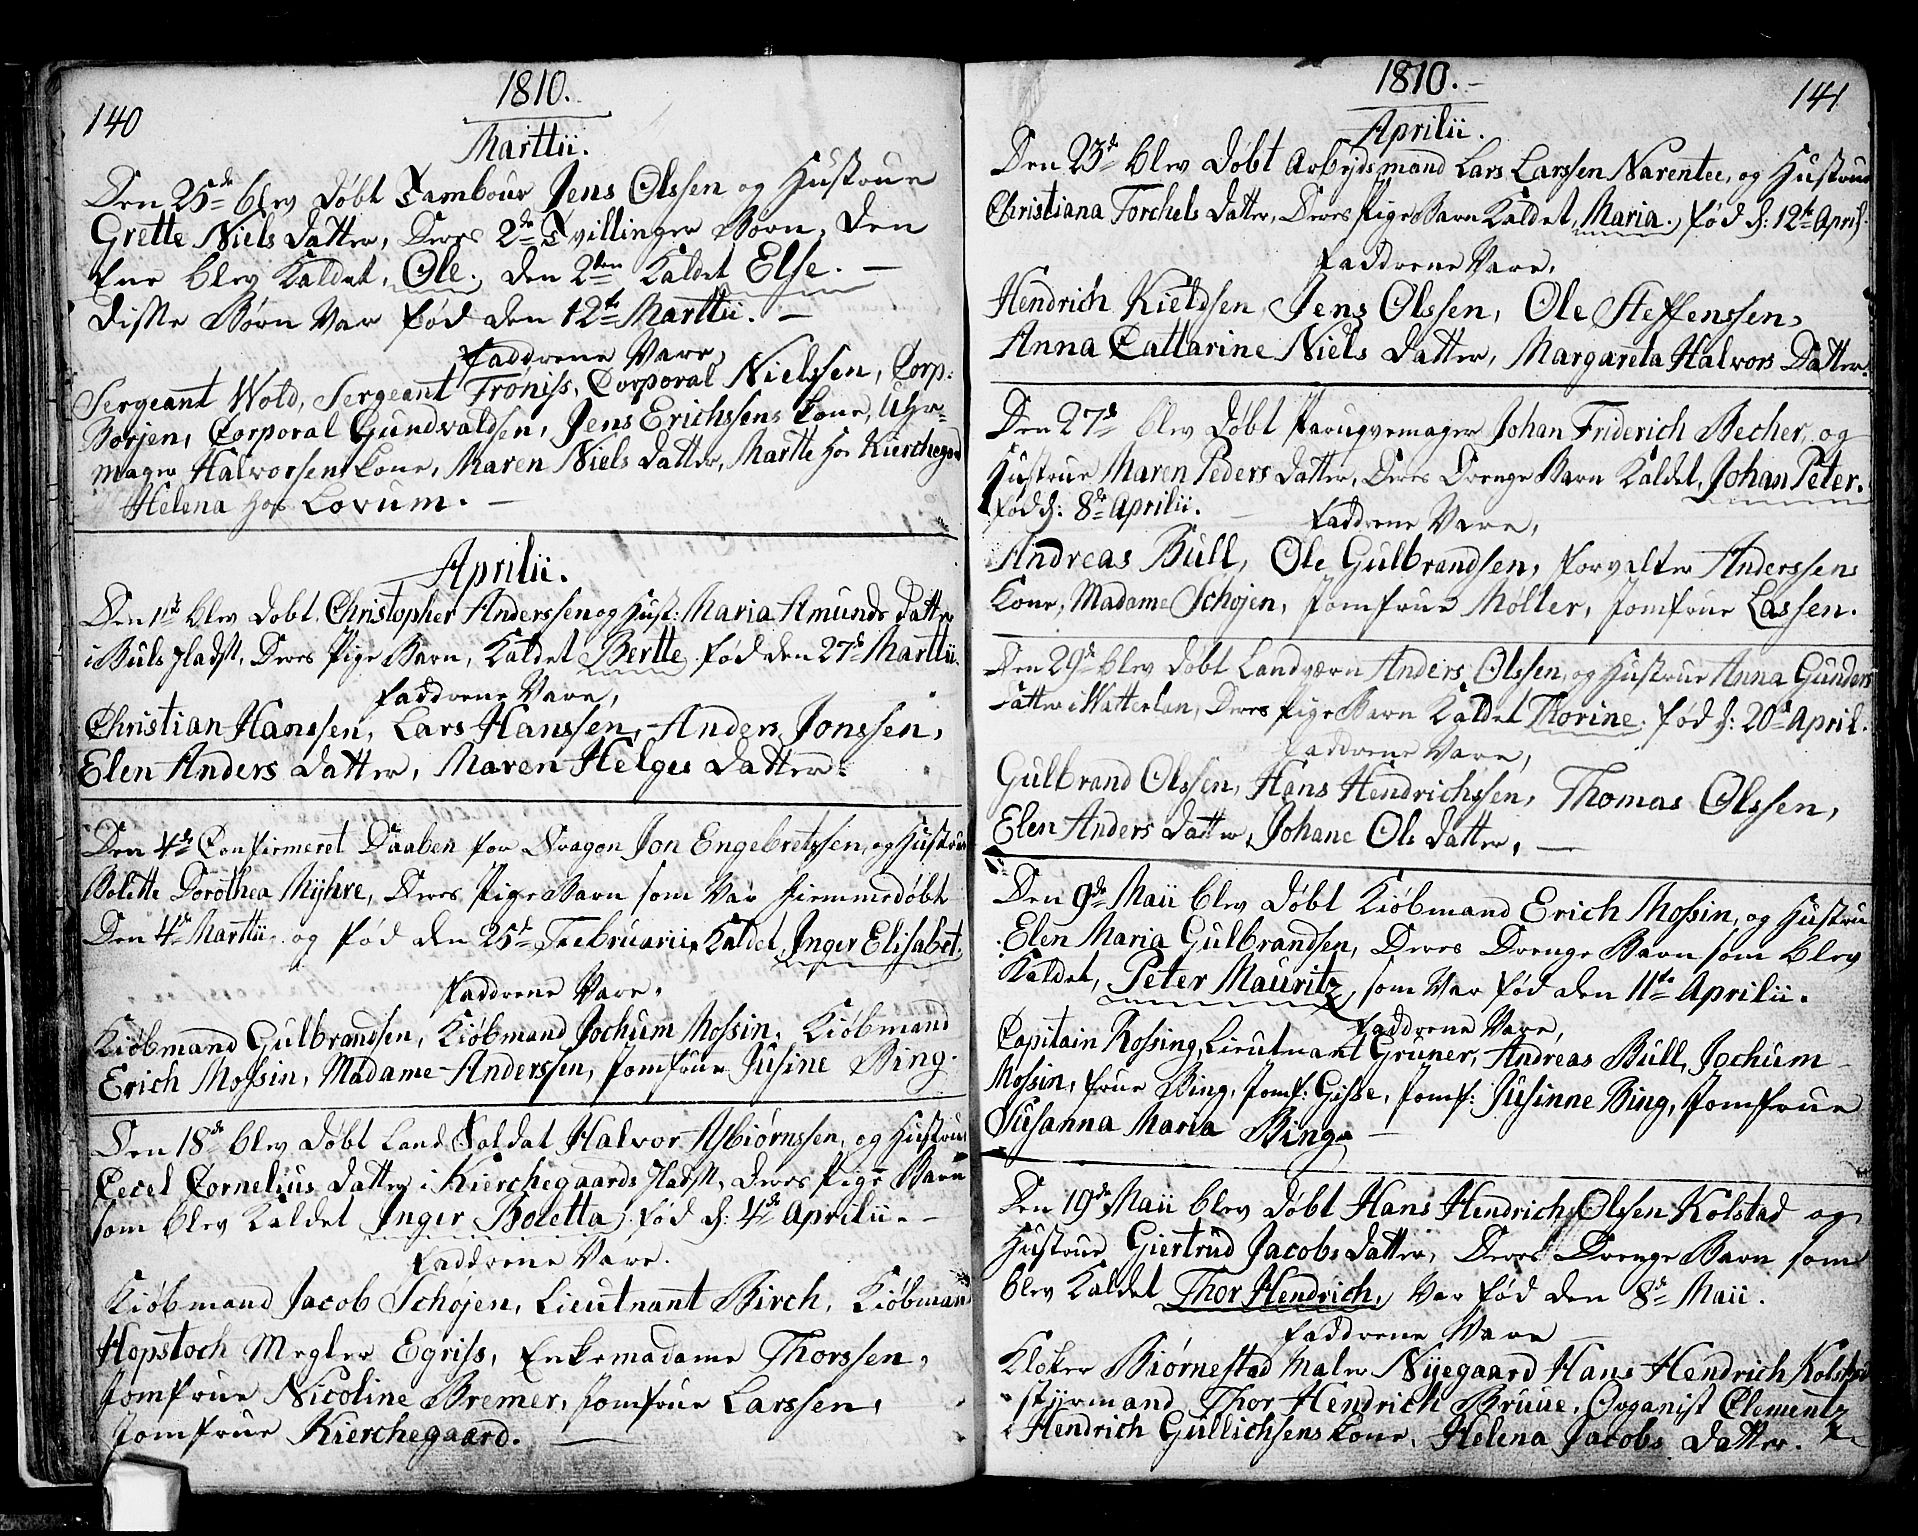 140
1810.
Marttii.
Den 25de blev døbt Tambour Jens Olssen og Hustrue
Grette Niels datter, Deres 2de Tvillinger Børn, den
Ene blev kaldet, Ole, den 2den kaldet Else. —
disse Børn var født den 12te Marttii. —
Faddrene Vare,
Sergeant Wold, Sergeant Frøniss, Corporal Nielssen, Corp:
Borjen, Corporal Gundvaldsen, Jens Erichssens kone, Uhr-
mager Halvorsens kone, Maren Niels datter, Marthe hos Kierchegaard
Helena hos Lovum. —
Aprilii.
Den 1te blev døbt Christopher Anderssen og Hust: Maria Amunds datter
i Buls Pladst, Deres Pige Barn, kaldet Bertte, født den 27de Marttii.
Faddrene Vare,
Christian Hanssen, Lars Hanssen, Anders Jonssen,
Elen Anders datter, Maren Helges datter.
Den 4de Confirmeret Daaben for Dragon Jon Engebretssen, og Hustrue
Bolette Dorothea Myhre, Deres Pige Barn som var hiemmedøbt
Den 4de Marttii, og født den 25de Februarii, kaldet, Inger Elisabet.
Faddrene Vare,
Kiøbmand Gulbrandsen, Kiøbmand Jochum Mossin, Kiøbmand
Erich Mossin, Madame Anderssen, Jomfrue Jusine Bing.
Den 18de blev døbt Land Soldat Halvor Asbiørnssen, og Hustrue
Cecel Cornelius datter i Kierchegaards Pladst, deres Pige Barn
som blev kaldet Inger Boletta, født d: 4de Aprilii. —
Faddrene Vare.
Kiøbmand Jacob Schøjen, Lieutnant Birch, Kiøbmand
Hopstoch Megler Egriss, Enkemadame Thorssen,
Jomfrue Nicoline Bremer, Jomfrue Larssen,
Jomfrue Kierchegaard. —
141
1810. —
Aprilii.
Den 23de blev døbt Arbejdsmand Lars Larssen Narentee, og Hustrue
Christiana Torchels datter, Deres Pige Barn kaldet, Maria, født d: 12te April.
Faddrene Vare,
Hendrich Kieldsen, Jens Olssen, Ole Steffenssen,
Anna Cattarine Niels datter, Margareta Halvors Datter.
Den 27de blev døbt Paruqvemager Johan Friderich Becher, og
Hustrue Maren Peders datter, Deres Drenge Barn kaldet, Johan Peter.
født d: 8de Aprilii. —
Faddrene Vare,
Andreas Bull, Ole Gulbrandsen, forvalter Anderssens
kone, Madame Schøjen, Jomfrue Møller, Jomfrue Lassen.
Den 29de blev døbt Landværn Anders Olssen, og Hustrue Anna Gunders
datter i Watterlan, Deres Pige Barn kaldet Thorine. født d: 20de April.
Faddrene Vare,
Gulbrand Olssen, Hans Hendrichssen, Thomas Olssen,
Elen Anders datter, Johane Ols datter, —
Den 9de Maii blev døbt Kiøbmand Erich Mossin, og Hustru
Elen Maria Gulbrandsen, Deres Drenge Barn som blev
kaldet, Peter Mauritz, som var født den 11te Aprilii.
Faddrene Vare,
Capitain Rossing, Lieutnant Gruner, Andreas Bull, Jochum
Mossin, frue Bing, Jomf: Gisse, Jomf: Jusinne Bing, Jomfrue
Susanna Maria Bing. —
Den 19de Maii blev døbt Hans Hendrich Olssen Kolstad og
Hustrue Giertrud Jacobs datter, Deres Drenge Barn som
blev kaldet Thor Hendrich, var født den 8de Maii.
Faddrene Vare
Kloker Biørnestad Maler Nyegaard Hans Hendrich Kolstad
styrmand Thor Hendrich Bruue, Organist Clementz
Hendrich Gullichsens kone, Helena Jacobs datter.